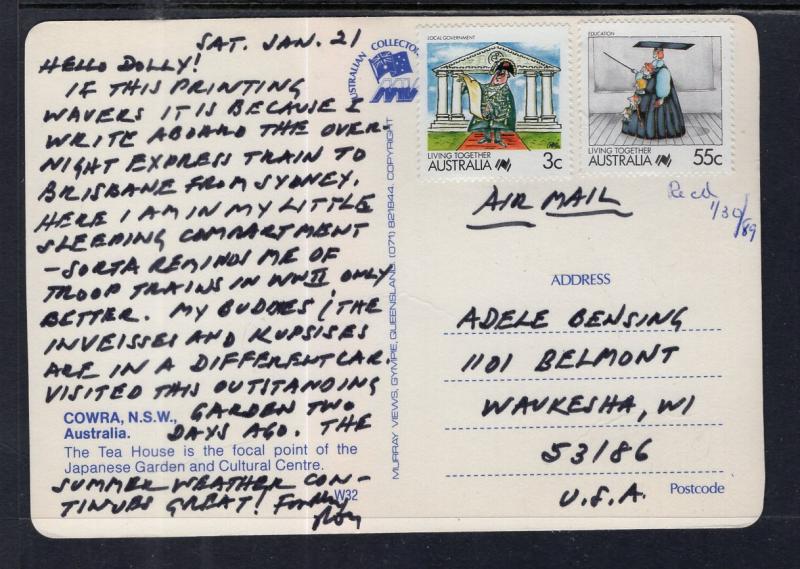 SAT. JAN. 21
HELLO DOLLY!
IF THIS PRINTING
WAVERS IT IS BECAUSE I
WRITE ABOARD THE OVER-
NIGHT EXPRESS TRAIN TO
BRISBANE FROM SYDNEY.
HERE I AM IN MY LITTLE
SLEEPING COMPARTMENT
- SORTA REMINDS ME OF
TROOP TRAINS IN WWII ONLY
BETTER. MY BUDDIES, THE
INVEISSES AND KUPSISES
ARE IN A DIFFERENT CAR.
VISITED THIS OUTSTANDING
GARDEN TWO
DAYS AGO. THE
SUMMER WEATHER CON-
TINUES GREAT! Fondly
Roy
COWRA, N.S.W.,
Australia.
The Tea House is the focal point of the
Japanese Garden and Cultural Centre.
W32
AUSTRALIAN COLLECTOR
MURRAY VIEWS, GYMPIE, QUEENSLAND. (071) 821844. COPYRIGHT
LOCAL GOVERNMENT
LIVING TOGETHER
AUSTRALIA 3c
EDUCATION
LIVING TOGETHER
AUSTRALIA 55c
AIR MAIL
Recd
1/30/89
ADDRESS
ADELE BENSING
1101 BELMONT
WAUKESHA, WI
53186
U.S.A.
Postcode